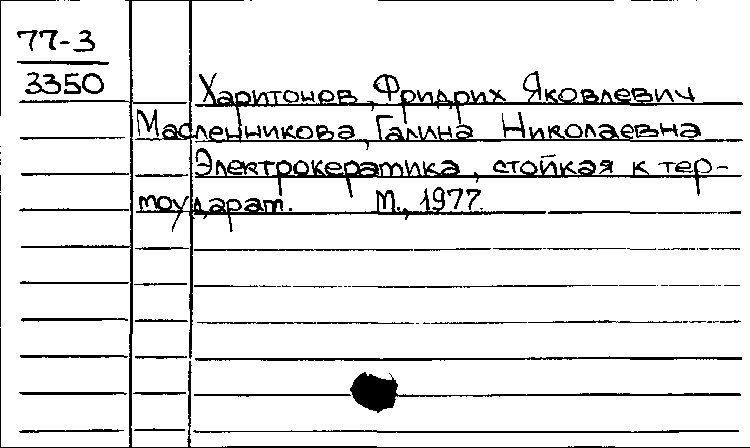 77-3
3350
Харитонов, Фридрих Яковлевич
Масленникова, Галина Николаевна
Электрокерамика, стойкая к тер-
моударам. М., 1977.